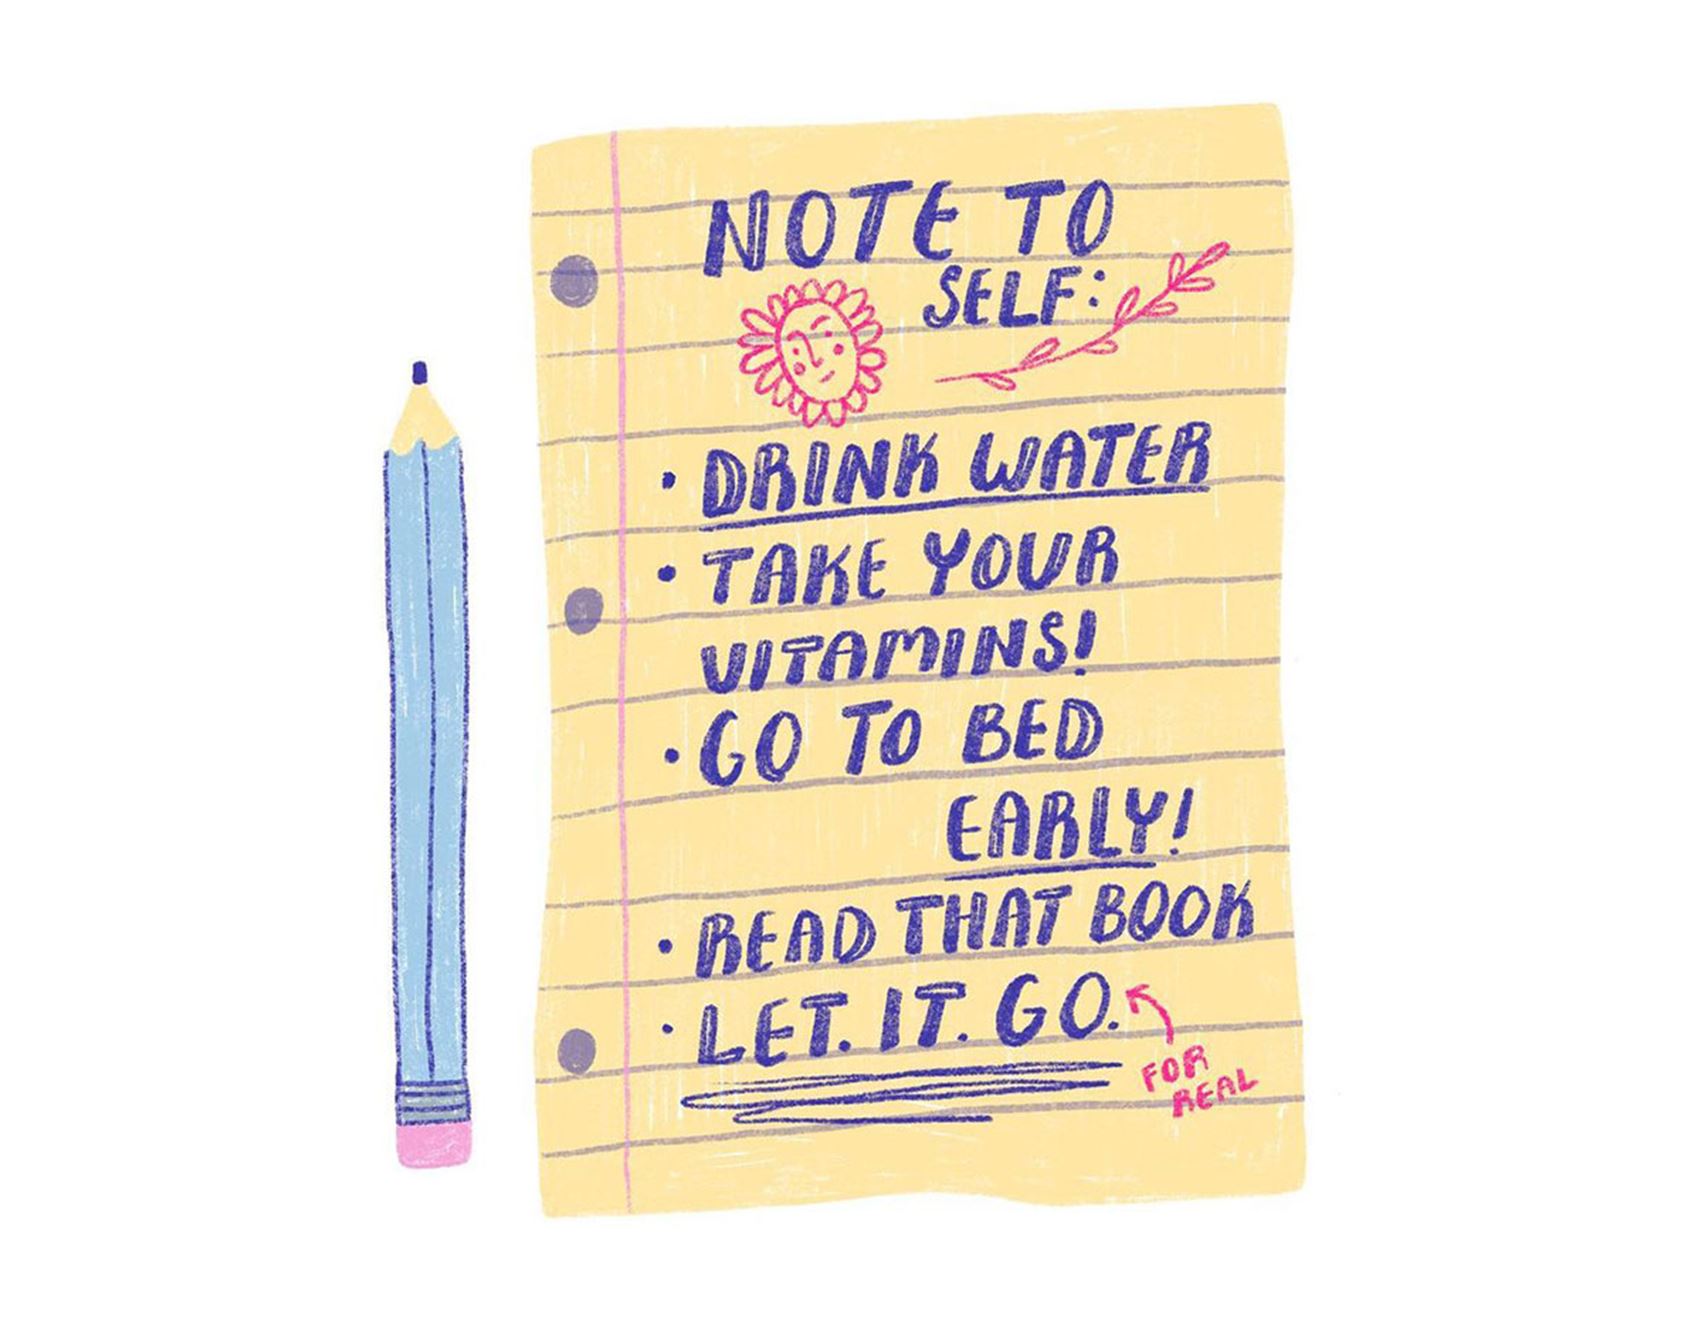 NOTE TO
SELF:
• DRINK WATER
• TAKE YOUR
VITAMINS!
• GO TO BED
EARLY!
• READ THAT BOOK
• LET. IT. GO.
FOR
REAL